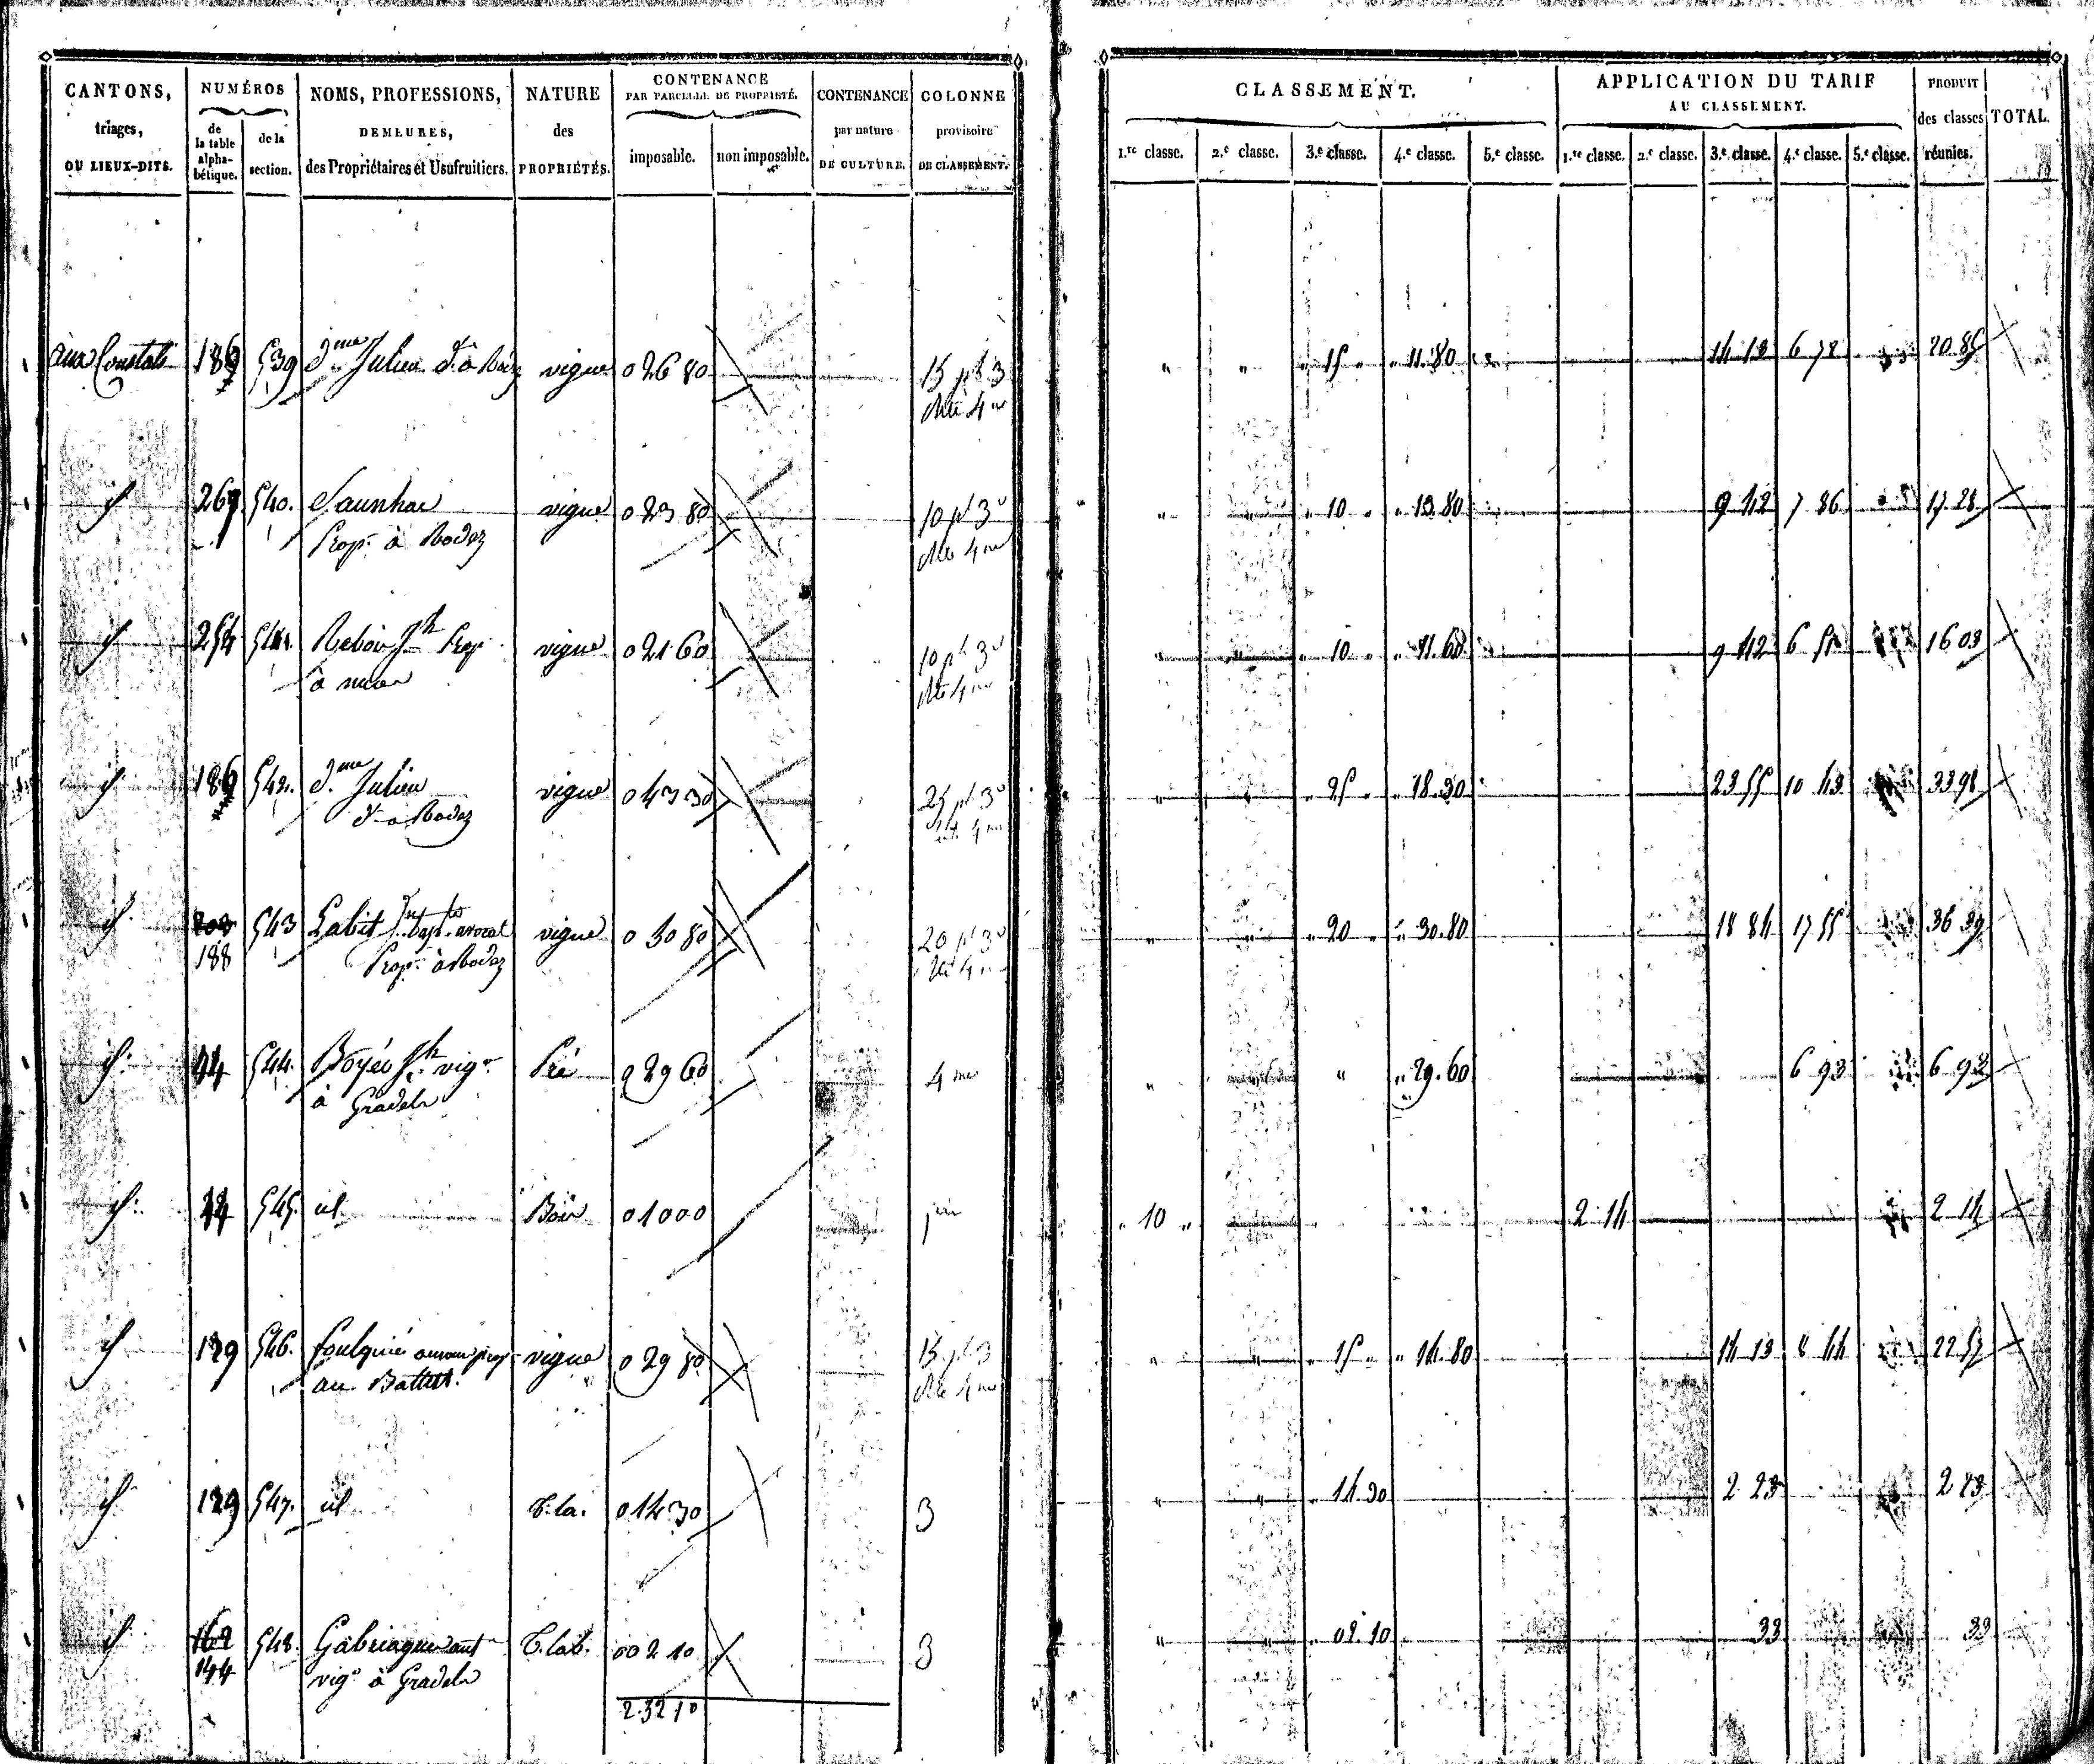 CANTONS,
triages,
OU LIEUX-DITS.
NUMÉROS
de
la table
alpha-
bétique.
de la
section.
NOMS, PROFESSIONS,
DEMEURES,
des Propriétaires et Usufruitiers.
NATURE
des
PROPRIÉTÉS.
CONTENANCE
PAR PARCELLE DE PROPRIÉTÉ.
imposable.
non imposable.
CONTENANCE
par nature
DE CULTURE.
COLONNE
provisoire
DE CLASSEMENT.
CLASSEMENT.
1.re classe. 2.e classe. 3.e classe. 4.e classe. 5.e classe.
APPLICATION DU TARIF
AU CLASSEMENT.
1.re classe. 2.e classe. 3.e classe. 4.e classe. 5.e classe.
PRODUIT
des classes
réunies.
TOTAL.
aux 539 Julien vigne 0 26 80 " " " 15 " " 11.80 14 13 6 72 20.85
15 pt 3
id 267 540. Saunhac vigne 0 23 80 10 pt 3 " " " 10 " " 13.80 9 42 7 86 17.28
Prop.re à Rodez
id 254 541. vigne 0 21 60 10 pt 3 " " " 10 " " 11.60 9 42 6 61 16 03
à
id 186 542. d.me Julien vigne 0 43 30 25 pt 3 " " " 25 " " 18.30 23 55 10 43 33 98
à Rodez
id 543 Labit bapt. avocat vigne 0 50 80 20 pt 3 " " " 20 " " 30.80 18 84 17 55 36 39
188 Prop.re à Rodez
id 44 544. Boyer vig.n Pré 0 29 60 4 me " " " " 29.60 6 93 6 93
à Gradels
id 44 545. id Bois 0 10 00 " 10 " 2 14 2 14
id 129 546. foulquié vigne 0 29 80 15 pt 3 " " " 15 " " 14.80 14 13 8 44 22 57
au Battut.
id 129 547. id T. la. 0 14 30 3 " " " 14.30 2 23 2 23
id 162 548. T. lab. 0 02 10 3 " " " 02.10 33 33
144 vig.n à Gradels
2.32 10